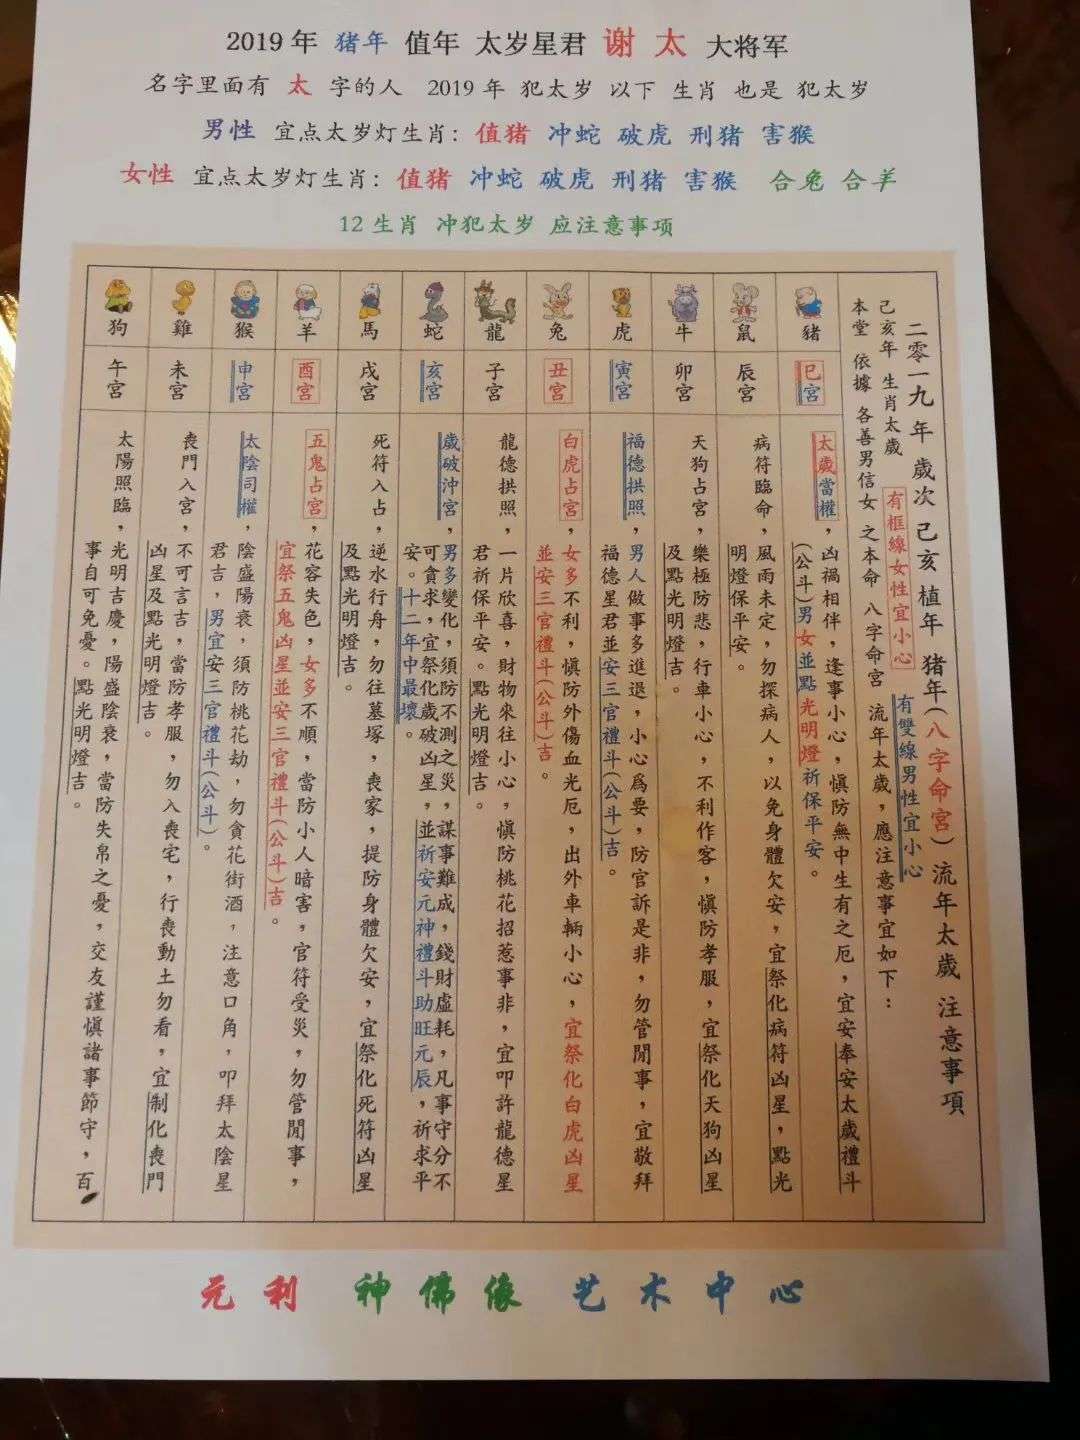 2019年 猪年 值年 太岁星君 谢太 大将军
名字里面有 太 字的人 2019年 犯太岁 以下 生肖 也是 犯太岁
男性 宜点太岁灯生肖：值猪 冲蛇 破虎 刑猪 害猴
女性 宜点太岁灯生肖：值猪 冲蛇 破虎 刑猪 害猴 合兔 合羊
12生肖 冲犯太岁 应注意事项
二零一九年 歲次 己亥 植年 猪年（八字命宮）流年太歲 注意事項
己亥年 生肖太歲 有框線女性宜小心 有雙線男性宜小心
本堂 依據 各善男信女 之本命 八字命宮 流年太歲，應注意事宜如下：
豬
巳宮
太歲當權，凶禍相伴，逢事小心，慎防無中生有之厄，宜安奉安太歲禮斗
（公斗）男女並點光明燈祈保平安。
鼠
辰宮
病符臨命，風雨未定，勿探病人，以免身體欠安，宜祭化病符凶星，點光
明燈保平安。
牛
卯宮
天狗占宮，樂極防悲，行車小心，不利作客，慎防孝服，宜祭化天狗凶星
及點光明燈吉。
虎
寅宮
福德拱照，男人做事多進退，小心為要，防官訴是非，勿管閒事，宜敬拜
福德星君並安三官禮斗（公斗）吉。
兔
丑宮
白虎占宮，女多不利，慎防外傷血光厄，出外車輛小心，宜祭化白虎凶星
並安三官禮斗（公斗）吉。
龍
子宮
龍德拱照，一片欣喜，財物來往小心，慎防桃花招惹事非，宜叩許龍德星
君祈保平安。點光明燈吉。
蛇
亥宮
歲破沖宮，男多變化，須防不測之災，謀事難成，錢財虛耗，凡事守分不
可貪求，宜祭化歲破凶星，並祈安元神禮斗助旺元辰，祈求平
安。十二年中最壞。
馬
戌宮
死符入占，逆水行舟，勿往墓塚，喪家，提防身體欠安，宜祭化死符凶星
及點光明燈吉。
羊
酉宮
五鬼占宮，花容失色，女多不順，當防小人暗害，官符受災，勿管閒事，
宜祭五鬼凶星並安三官禮斗（公斗）吉。
猴
申宮
太陰司權，陰盛陽衰，須防桃花劫，勿貪花街酒，注意口角，叩拜太陰星
君吉，男宜安三官禮斗（公斗）。
雞
未宮
喪門入宮，不可言吉，當防孝服，勿入喪宅，行喪動土勿看，宜制化喪門
凶星及點光明燈吉。
狗
午宮
太陽照臨，光明吉慶，陽盛陰衰，當防失帛之憂，交友謹慎諸事節守，百
事自可免憂。點光明燈吉。
元利 神佛像 艺术中心